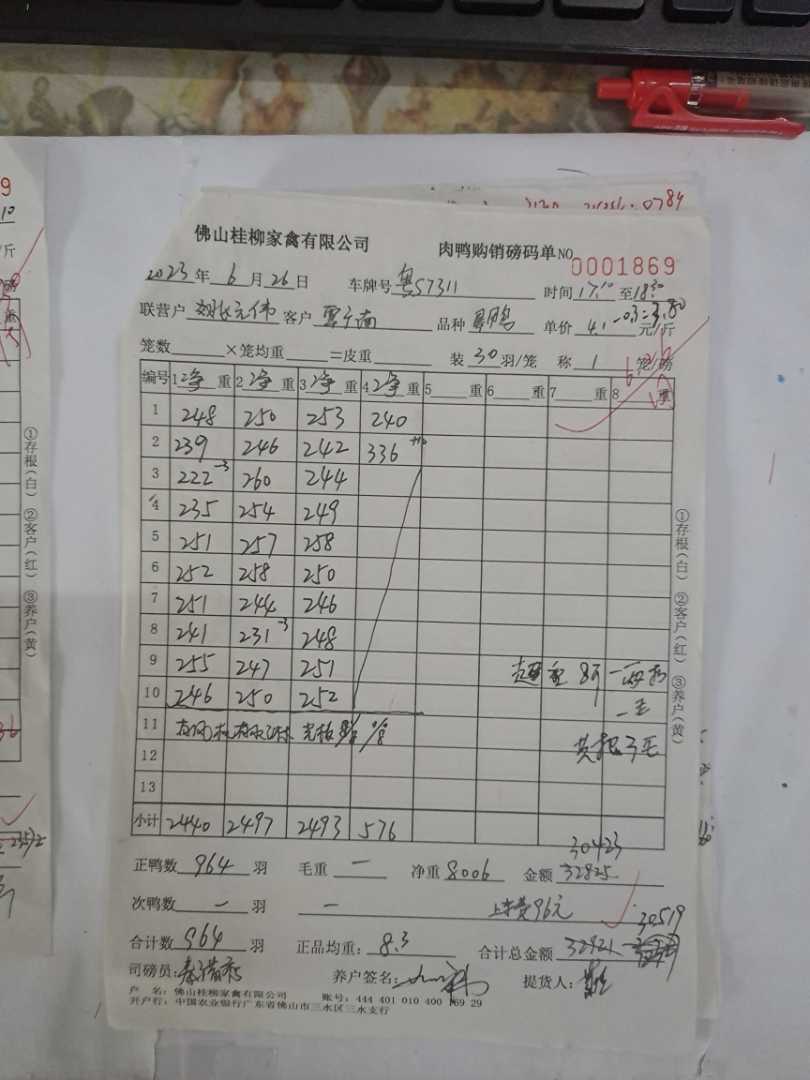 佛山桂柳家禽有限公司 肉鸭购销磅码单 NO 0001869
2023年6月26日 车牌号 粤S7311 时间17:10至18:30
联营户 客户 品种 单价 4.1-0.3=3.80元/斤
笼数 ×笼均重 =皮重 装30羽/笼 称 1 笼/磅
编号 1净重 2净重 3净重 4净重 5 重 6 重 7 重 8 重
1 248 250 253 240
2 239 246 242 336
3 222-3 260 244
4 235 254 249
5 251 257 258
6 252 258 250
7 251 244 246
8 241 231-3 248
9 255 247 251
超重8斤一两扣
一毛
10 246 250 252
共扣3毛
11
12
13
小计 2440 2497 2493 576
30423
正鸭数 964 羽 毛重 一 净重 8006 金额 32825
次鸭数 一 羽 一 上车费96元
30519
合计数 964 羽 正品均重: 8.3 合计总金额 32921
司磅员: 养户签名: 提货人:
户 名: 佛山桂柳家禽有限公司 账号: 444 401 010 400 169 29
开户行: 中国农业银行广东省佛山市三水区三水支行
①存根(白) ②客户(红) ③养户(黄)
①存根(白) ②客户(红) ③养户(黄)